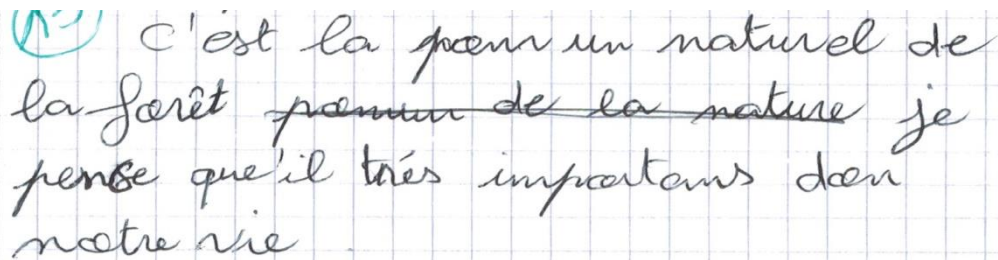 C'est la pom un naturel de
la forêt pomun de la nature je
pense que'il trés importans don
notre vie